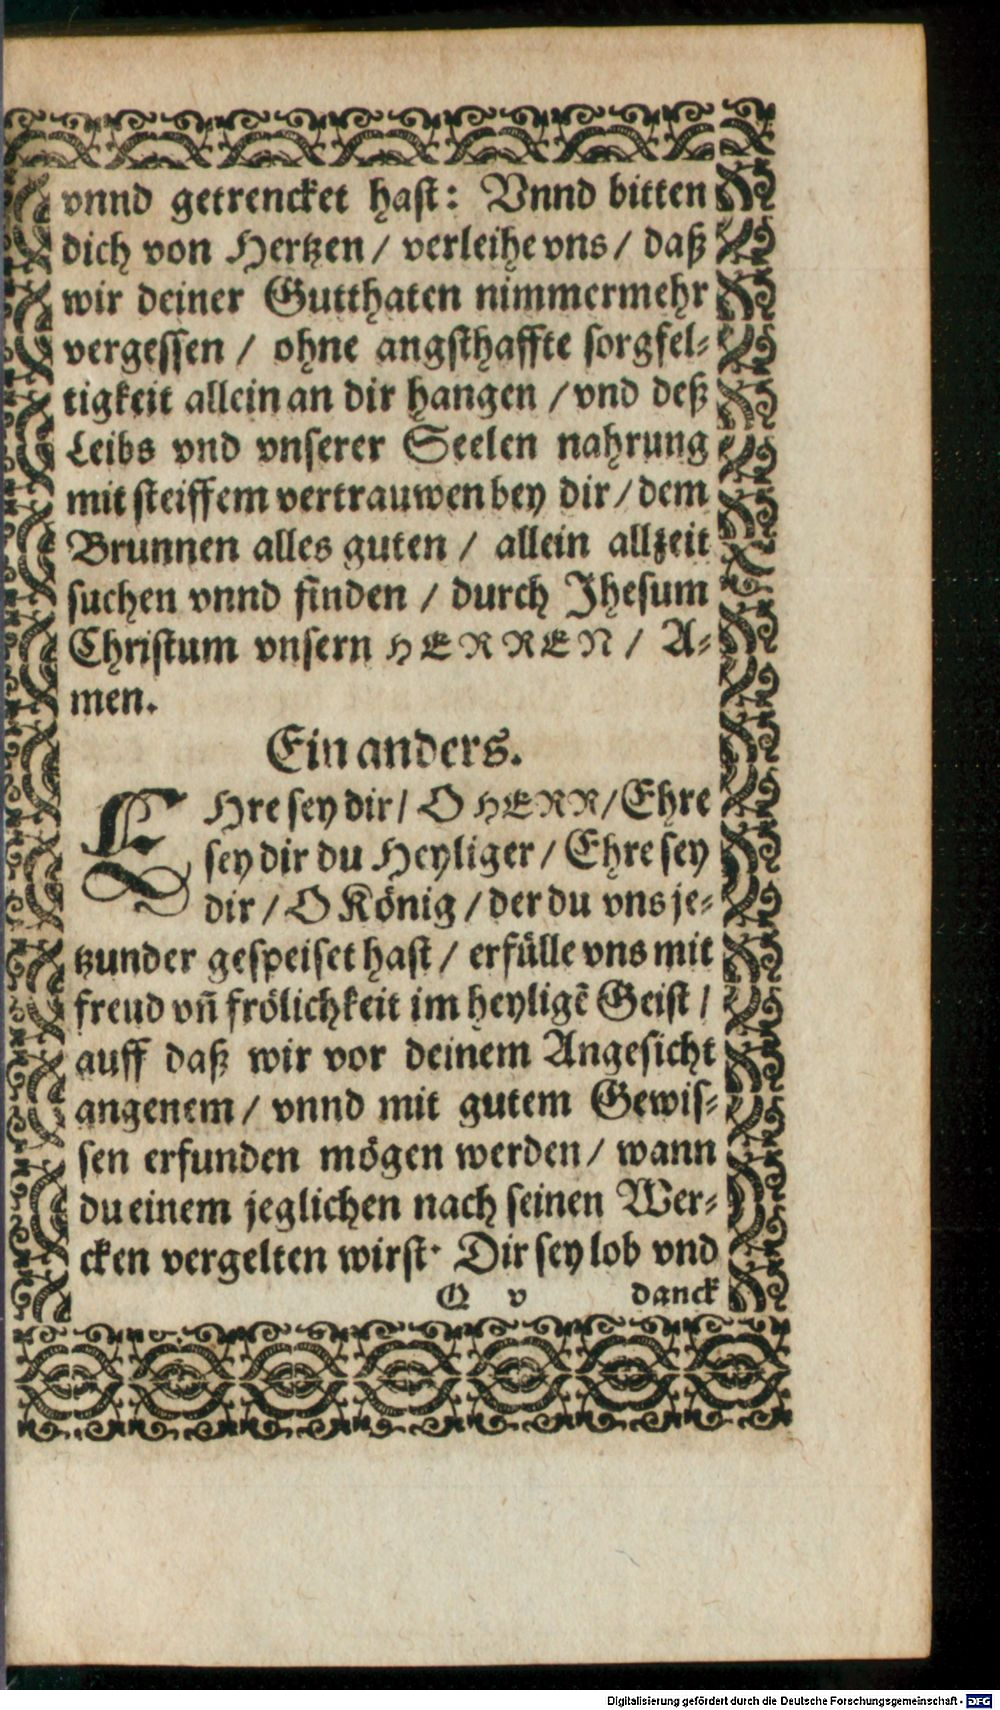 vnnd getrencket hast: Vnnd bitten
dich von Hertzen / verleihe vns / daß
wir deiner Gutthaten nimmermehr
vergessen / ohne angsthaffte sorgfel-
tigkeit allein an dir hangen / vnd deß
Leibs vnd vnserer Seelen nahrung
mit steiffem vertrauwen bey dir / dem
Brunnen alles guten / allein allzeit
suchen vnnd finden / durch Jhesum
Christum vnsern HERREN / A-
men.
Ein anders.
EHre sey dir / O HERR / Ehre
sey dir du Heyliger / Ehre sey
dir / O König / der du vns je-
tzunder gespeiset hast / erfülle vns mit
freud vñ frölichkeit im heyligẽ Geist /
auff daß wir vor deinem Angesicht
angenem / vnnd mit gutem Gewis-
sen erfunden mögen werden / wann
du einem jeglichen nach seinen Wer-
cken vergelten wirst. Dir sey lob vnd
Q v danck
Digitalisierung gefördert durch die Deutsche Forschungsgemeinschaft - DFG